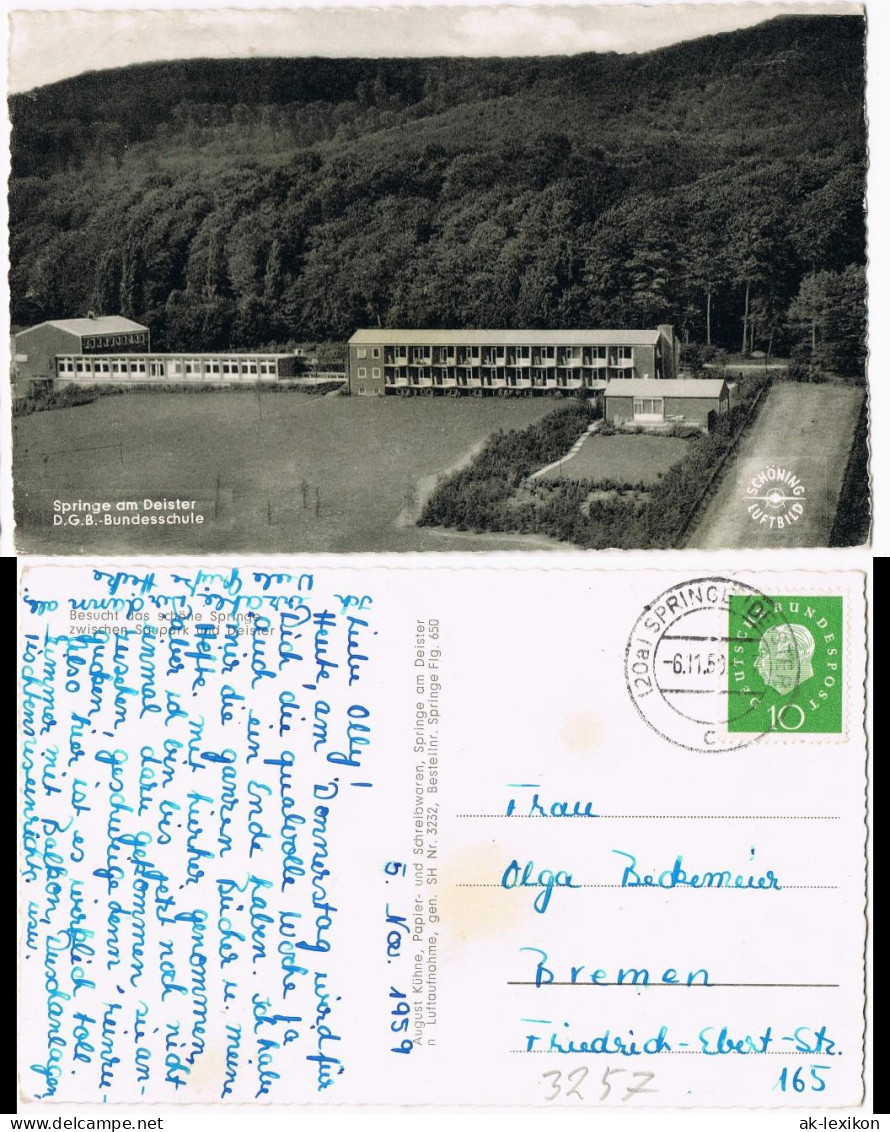 Springe am Deister
D.G.B.-Bundesschule
SCHÖNING
LUFTBILD
Besucht das schöne Springe
zwischen Saupark und Deister
5. Nov. 1959
Liebe Olly!
Heute, am Donnerstag wird für
Dich die qualvolle Woche ja
auch ein Ende haben. Ich habe
mir die ganzen Bücher u. meine
Hefte mit hierher genommen,
aber ich bin bis jetzt noch nicht
einmal dazu gekommen sie an-
zusehen, geschweige denn, reinzu-
gucken.
Also hier ist es wirklich toll.
Zimmer mit Balkon, Duschanlagen,
Tischtenniseinrichtg. usw.
Viele Grüße
Heike
August Kühne, Papier- und Schreibwaren, Springe am Deister
n Luftaufnahme, gen. SH Nr. 3232, Bestellnr. Springe Flg. 650
(20a) SPRINGE (DEISTER)
-6.11.59
c
DEUTSCHE BUNDESPOST
10
Frau
Olga Beckemeier
Bremen
Friedrich-Ebert-Str.
165
3257
ak-lexikon